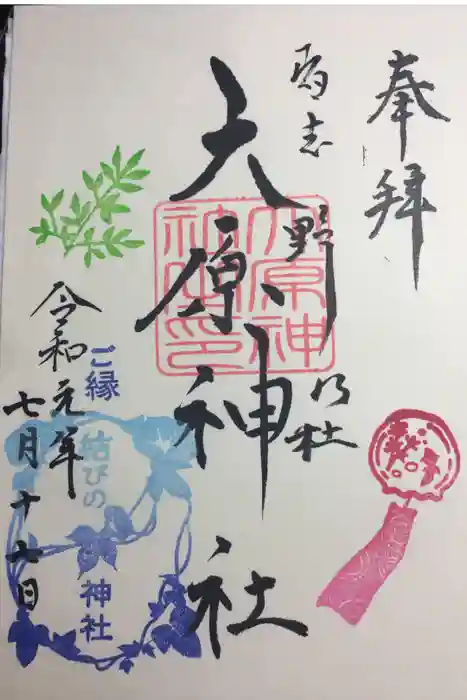 奉拝
習志野乃社
大原神社
大原神社印
令和元年
七月十七日
ご縁
結びの
神社